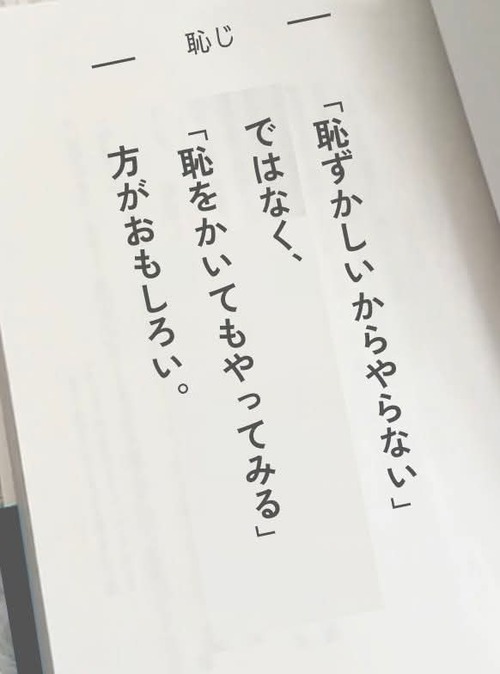 恥じ
「恥ずかしいからやらない」
ではなく、
「恥をかいてもやってみる」
方がおもしろい。